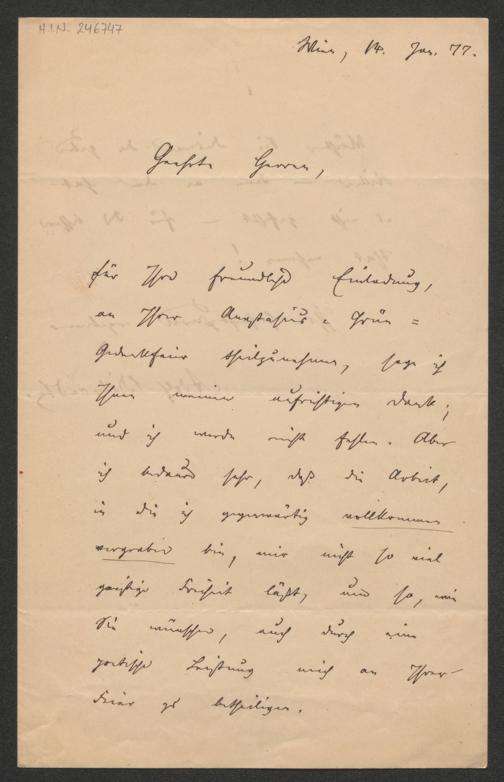 H.I.N. 246747
Wien, 14. Jan. 77.
Geehrte Herren,
für Ihre freundliche Einladung,
an Ihrer Anastasius-Grün=
Gedenkfeier theilzunehmen, sage ich
Ihnen meinen aufrichtigen Dank;
und ich werde nicht fehlen. Aber
ich bedaure sehr, daß die Arbeit,
in die ich gegenwärtig vollkommen
vergraben bin, mir nicht so viel
geistige Freiheit läßt, um so, wie
Sie wünschen, auch durch eine
poetische Leistung mich an Ihrer
Feier zu betheiligen.